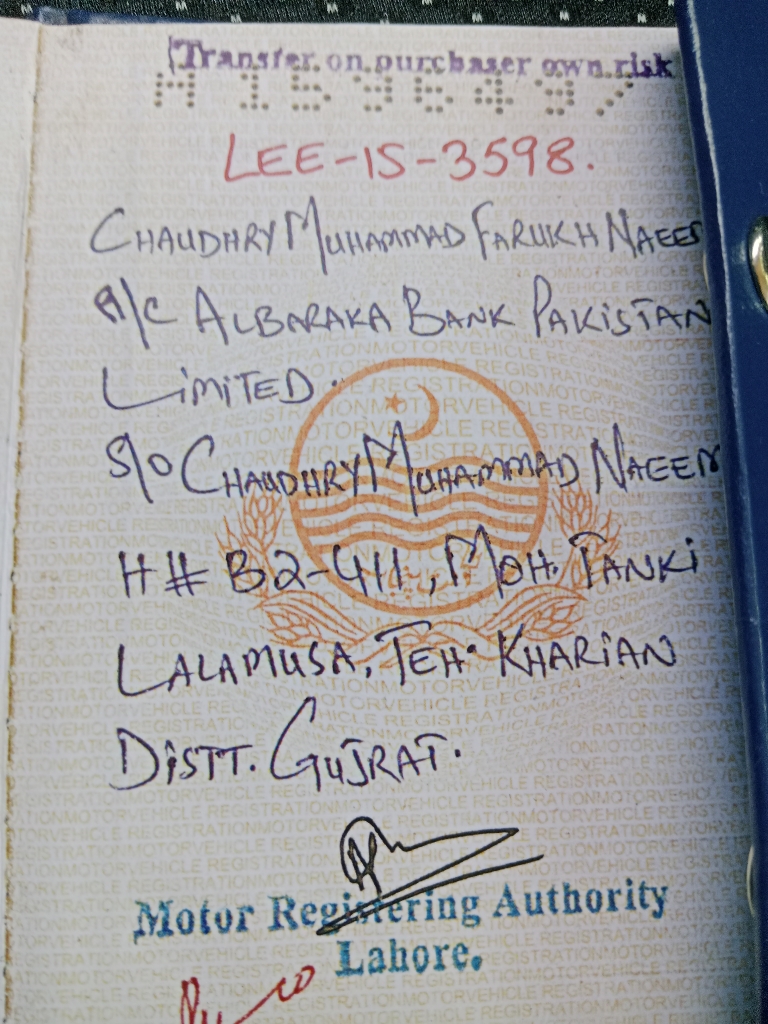 Transfer on purchaser own risk
A 1596497
LEE-15-3598.
CHAUDHRY MUHAMMAD FARUKH NAEEM
A/C ALBARAKA BANK PAKISTAN
LIMITED.
S/O CHAUDHRY MUHAMMAD NAEEM
H# B2-411, MOH. TANKI
LALAMUSA, TEH. KHARIAN
DISTT. GUJRAT.
Motor Registering Authority
Lahore.